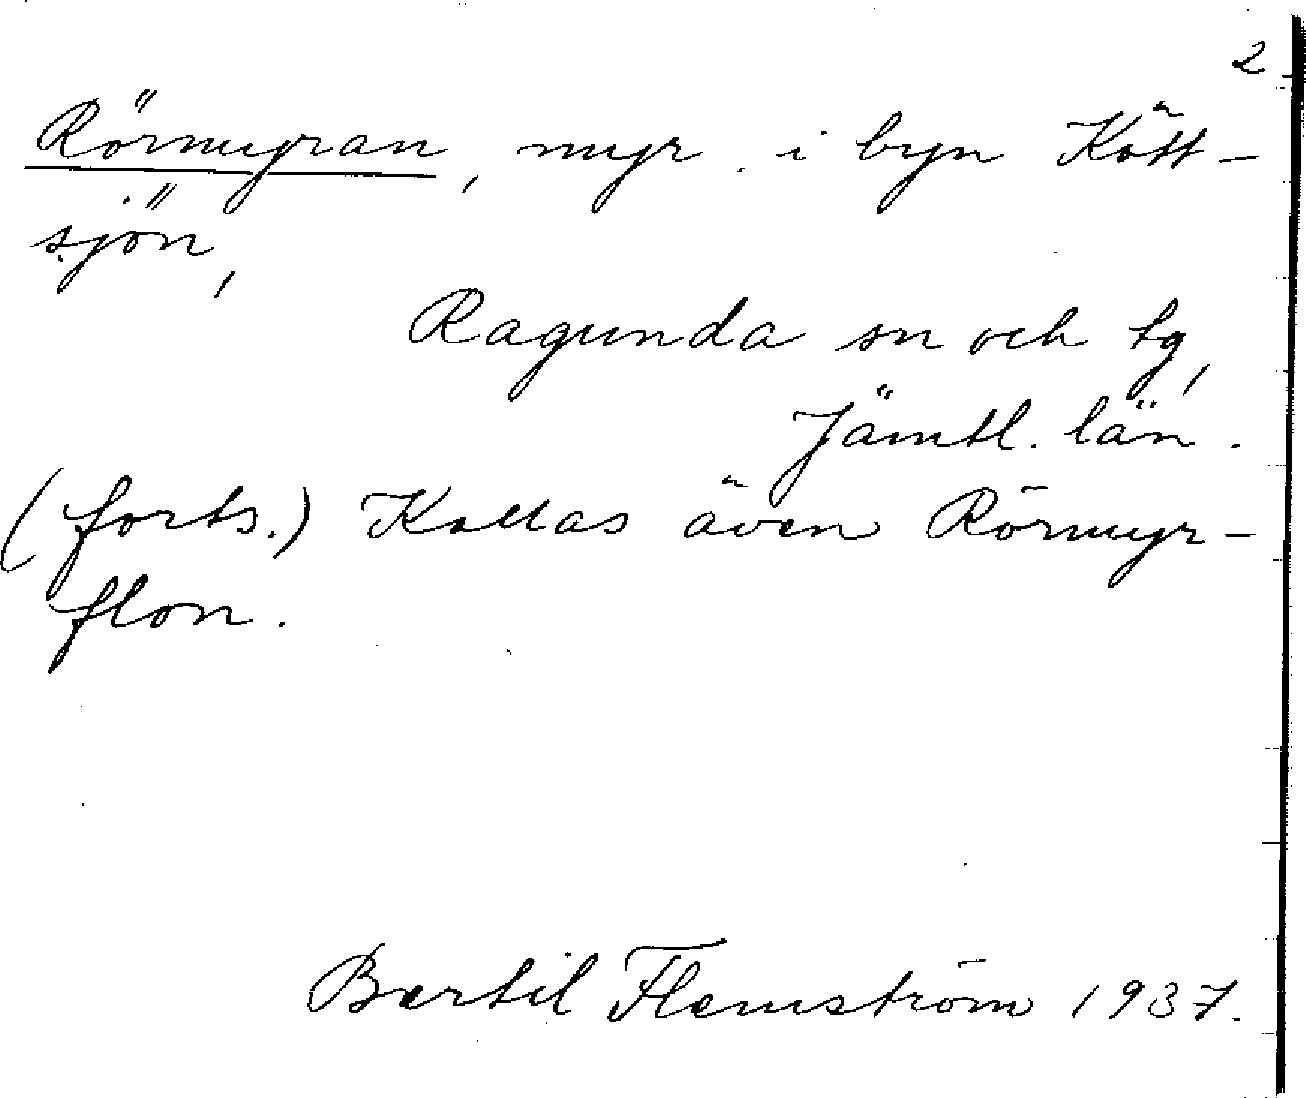 2
Rörmyran, myr i byn Kött-
sjön,
Ragunda sn och tg,
Jämtl. län.
(forts.) Kallas även Rörmyr-
flon.
Bertil Flemström 1937.